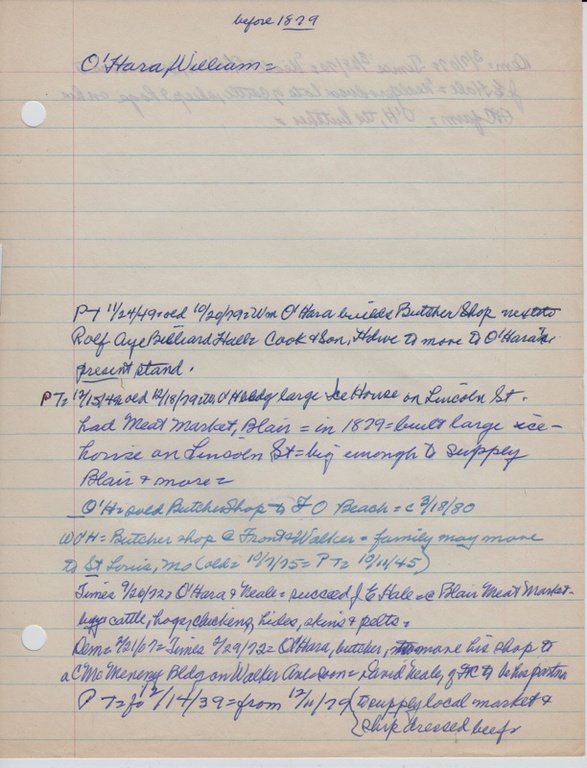 before 1879
O'Hara, William =
PT 11/24/49 = old 10/20/79 = Wm O'Hara builds Butcher Shop next to
Rolf Aye Billiard Hall = Cook & Son, Hdwe to move to O'Hara's
present stand.
PT = old 12/18/79 = O'H bldg large Ice House on Lincoln St.
had Meat Market, Blair = in 1879 = built large ice-
house on Lincoln St = big enough to supply
Blair & more =
O'H = sold Butcher Shop to F O Beach = c 3/18/80
WO'H = Butcher shop @ Front & Walker = family may move
to St Louis, Mo (old = 10/7/75 = PT = 10/11/45)
Times 9/20/72 = O'Hara & Neale = succeed J E Hale = @ Blair Meat Market -
buys cattle, hogs, chickens, hides, skins & pelts =
Rem = 2/21/67 = Times 2/29/72 = O'Hara, butcher, to move his shop to
a C McMenemy Bldg on Walker Ave soon = David Neale, of FtC to be his partner
PT = for 12/14/39 = from 12/11/79 (to supply local market &
ship dressed beef